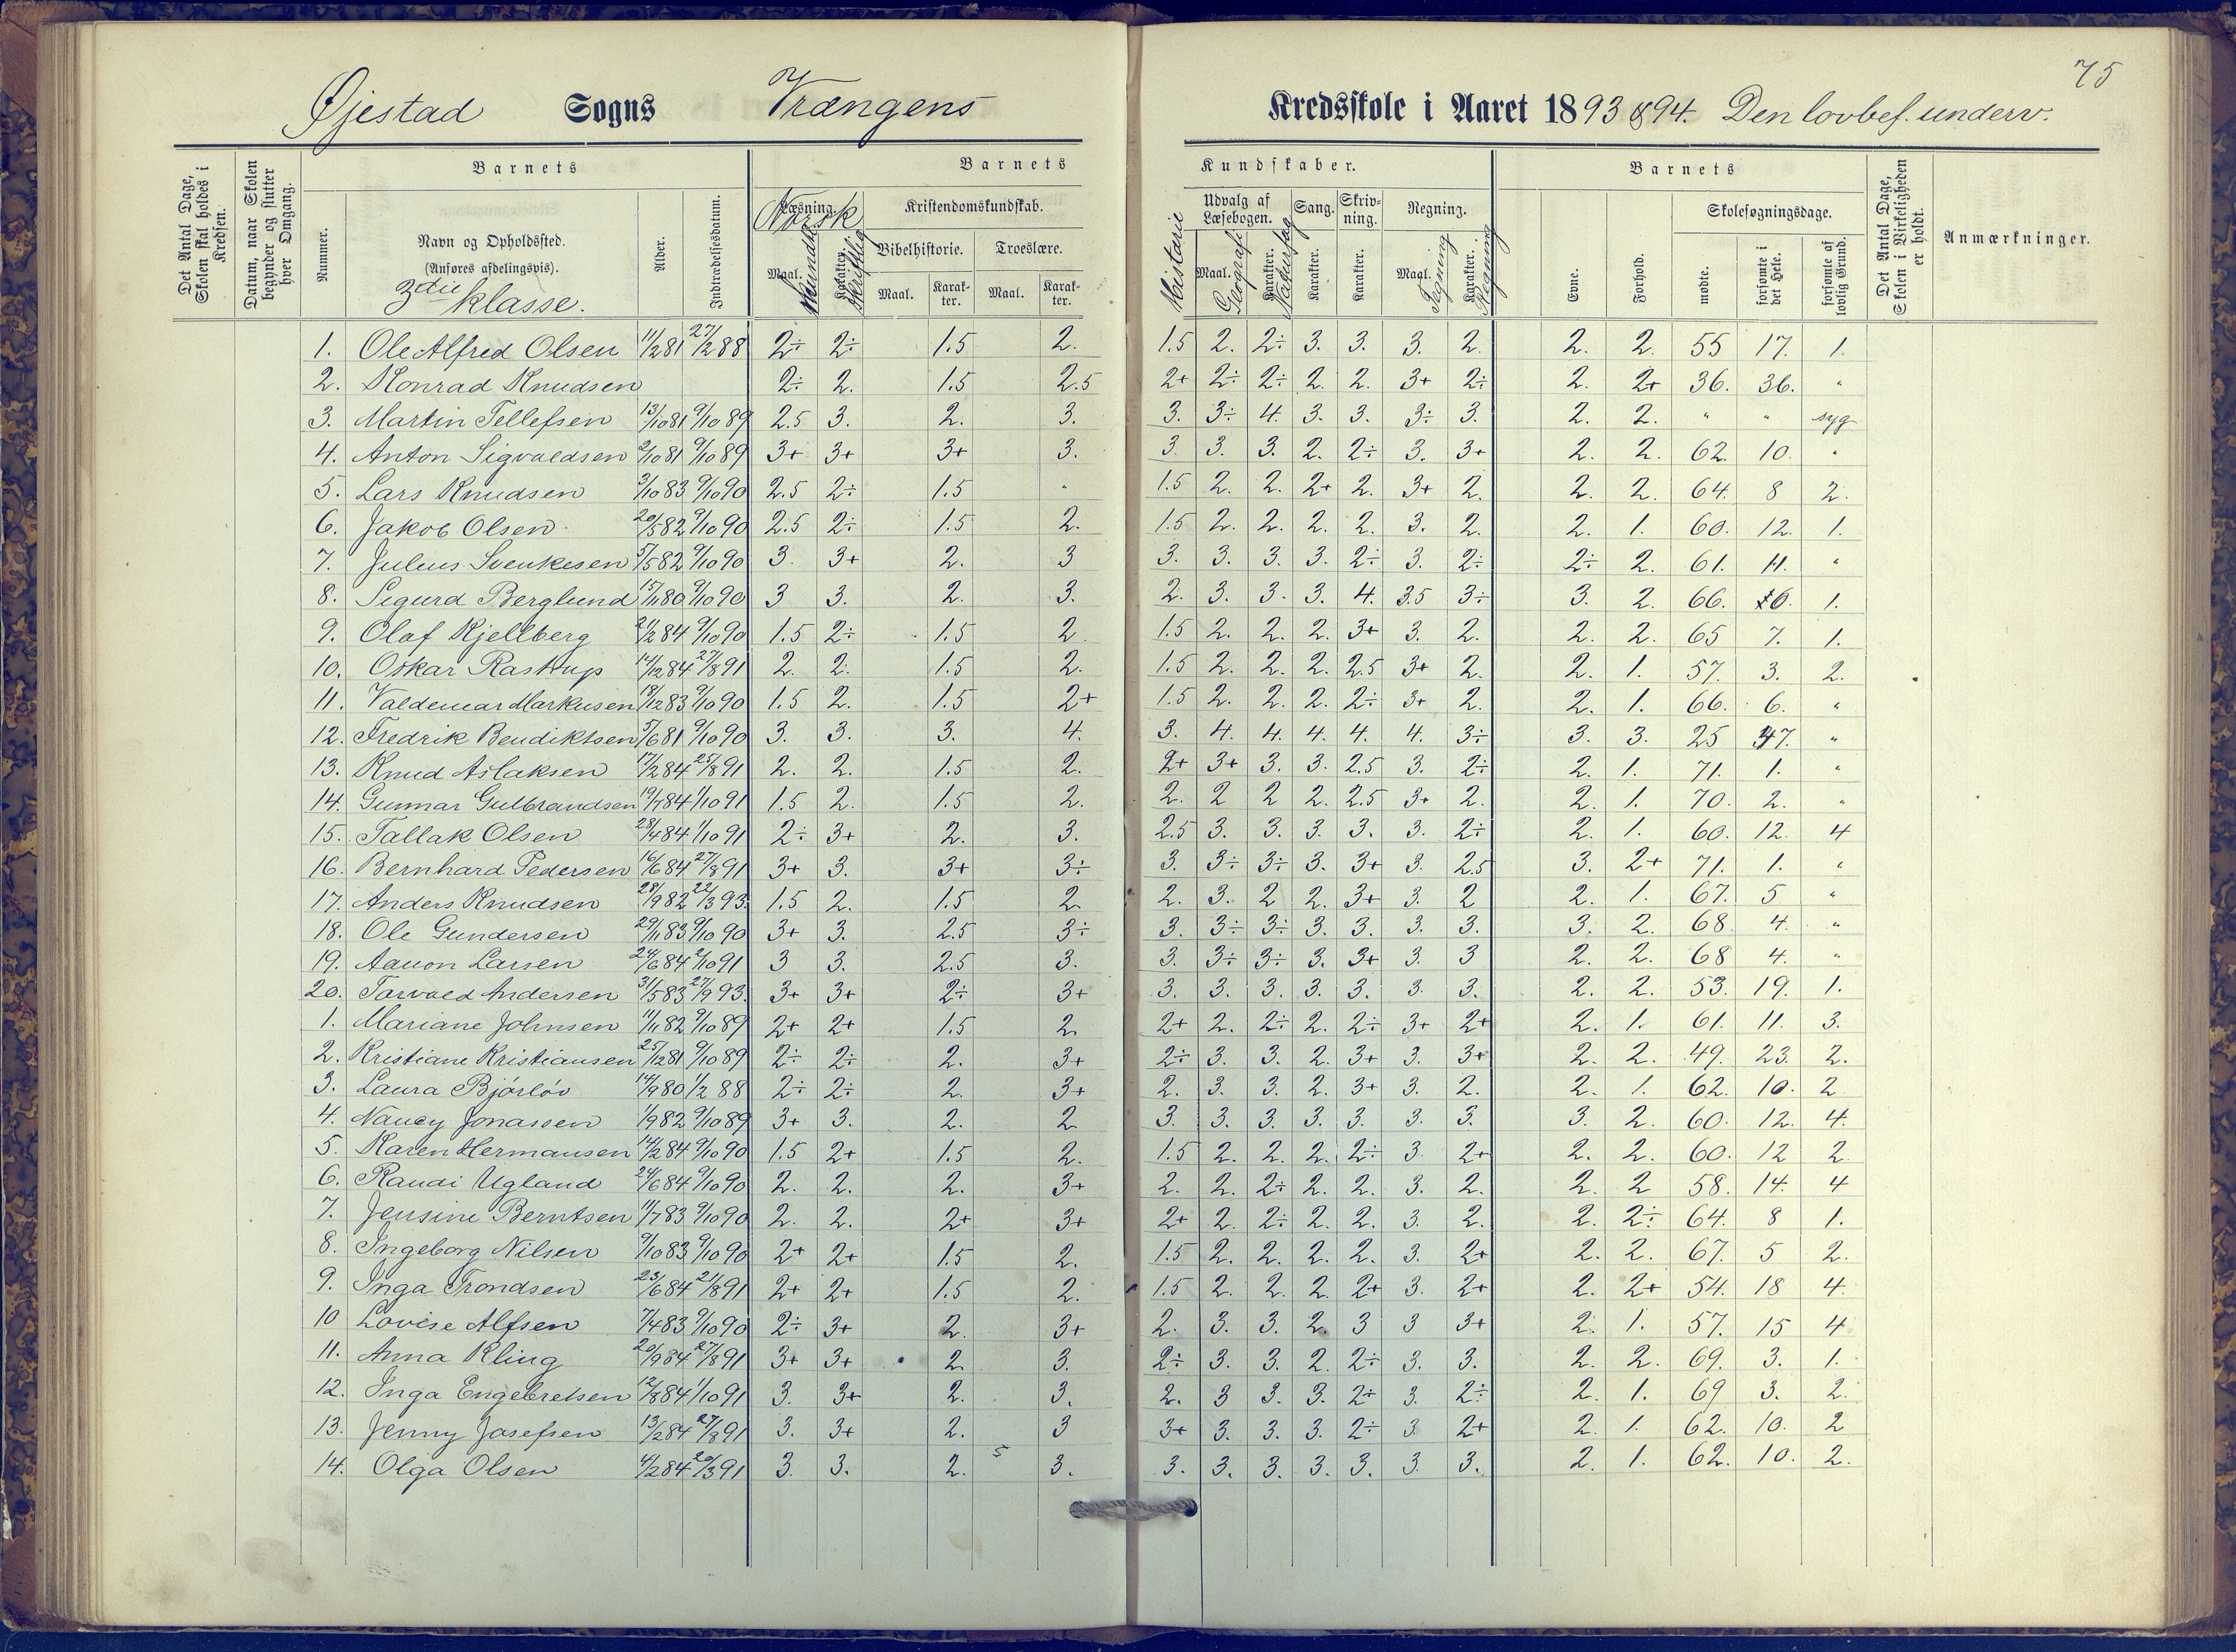 75
Øjestad Sogns Vrængens Kredsskole i Aaret 1893 & 94. Den lovbef. underv.
Det Antal Dage, Skolen skal holdes i Kredsen.
Datum, naar Skolen begynder og slutter hver Omgang.
Barnets
Nummer.
Navn og Opholdssted.
(Anføres afdelingsvis).
3die klasse.
Alder.
Indtrædelsesdatum.
Barnets Kundskaber.
Læsning. Norsk
Maal. Mundtlig
Karakter. Skriftlig
Kristendomskundskab.
Bibelhistorie. Troeslære.
Maal. Karakter. Maal. Karakter.
Historie
Udvalg af Læsebogen.
Maal. Geografi
Karakter. Naturfag
Sang. Karakter.
Skrivning. Karakter.
Regning.
Maal. Tegning
Karakter. Regning
Barnets
Evne. Forhold.
Skolesøgningsdage.
mødte. forsømte i det Hele. forsømte af lovlig Grund.
Det Antal Dage, Skolen i Virkeligheden er holdt.
Anmærkninger.
1. Ole Alfred Olsen 11/2 81 27/2 88 2÷ 2÷ 1.5 2. 1.5 2. 2÷ 3. 3. 3. 2. 2. 2. 55 17. 1.
2. Konrad Knudsen 2÷ 2. 1.5 2.5 2+ 2÷ 2÷ 2. 2. 3+ 2÷ 2. 2+ 36. 36. "
3. Martin Tellefsen 13/10 81 9/10 89 2.5 3. 2. 3. 3. 3÷ 4. 3. 3. 3÷ 3. 2. 2. " " syg
4. Anton Sigvaldsen 2/10 81 9/10 89 3+ 3+ 3+ 3. 3. 3. 3. 2. 2÷ 3. 3+ 2. 2. 62. 10. "
5. Lars Knudsen 3/10 83 9/10 90 2.5 2÷ 1.5 " 1.5 2. 2. 2+ 2. 3+ 2. 2. 2. 64. 8 2.
6. Jakob Olsen 20/5 82 9/10 90 2.5 2÷ 1.5 2. 1.5 2. 2. 2. 2. 3. 2. 2. 1. 60. 12. 1.
7. Julius Svenkesen 5/5 82 9/10 90 3. 3+ 2. 3 3. 3. 3. 3. 2÷ 3. 2÷ 2÷ 2. 61. 11. "
8. Sigurd Berglund 15/11 80 9/10 90 3 3. 2. 3. 2. 3. 3. 3. 4. 3.5 3÷ 3. 2. 66. 6. 1.
9. Olaf Kjellberg 21/2 84 9/10 90 1.5 2÷ 1.5 2. 1.5 2. 2. 2. 3+ 3. 2. 2. 2. 65 7. 1.
10. Oskar Rastrup 14/12 84 27/8 91 2. 2. 1.5 2. 1.5 2. 2. 2. 2.5 3+ 2. 2. 1. 57. 3. 2.
11. Valdemar Markusen 18/12 83 9/10 90 1.5 2. 1.5 2+ 1.5 2. 2. 2. 2÷ 3+ 2. 2. 1. 66. 6. "
12. Fredrik Bendiktsen 5/6 81 9/10 90 3. 3. 3. 4. 3. 4. 4. 4. 4. 4. 3÷ 3. 3. 25 47. "
13. Knud Aslaksen 17/2 84 25/8 91 2. 2. 1.5 2. 2+ 3+ 3. 3. 2.5 3. 2÷ 2. 1. 71. 1. "
14. Gunnar Gulbrandsen 19/7 84 1/10 91 1.5 2. 1.5 2. 2. 2 2 2. 2.5 3+ 2. 2. 1. 70. 2. "
15. Tallak Olsen 28/4 84 1/10 91 2÷ 3+ 2. 3. 2.5 3. 3. 3. 3. 3. 2÷ 2. 1. 60. 12. 4
16. Bernhard Pedersen 16/6 84 27/8 91 3+ 3. 3+ 3÷ 3. 3÷ 3÷ 3. 3+ 3. 2.5 3. 2+ 71. 1. "
17. Anders Knudsen 28/9 82 22/3 93. 1.5 2. 1.5 2. 2. 3. 2 2. 3+ 3. 2 2. 1. 67. 5 "
18. Ole Gundersen 29/11 83 9/10 90 3+ 3. 2.5 3÷ 3. 3÷ 3÷ 3. 3. 3. 3. 3. 2. 68 4. "
19. Aanon Larsen 24/6 84 2/10 91 3 3. 2.5 3. 3. 3÷ 3÷ 3. 3+ 3. 3 2. 2. 68 4. "
20. Torvald Andersen 31/5 83 27/9 93. 3+ 3+ 2÷ 3+ 3. 3. 3. 3. 3. 3. 3. 2. 2. 53. 19. 1.
1. Mariane Johnsen 11/11 82 9/10 89 2+ 2+ 1.5 2. 2+ 2. 2÷ 2. 2÷ 3+ 2+ 2. 1. 61. 11. 3.
2. Kristiane Kristiansen 25/12 81 9/10 89 2÷ 2÷ 2. 3+ 2÷ 3. 3. 2. 3+ 3. 3+ 2. 2. 49. 23. 2.
3. Laura Bjórlóv 14/9 80 1/2 88 2÷ 2÷ 2. 3+ 2. 3. 3. 2. 3+ 3. 2. 2. 1. 62. 10. 2
4. Nancy Jonassen 1/9 82 9/10 89 3+ 3. 2. 2. 3. 3. 3. 3. 3. 3. 3. 3. 2. 60. 12. 4.
5. Karen Hermansen 14/2 84 9/10 90 1.5 2+ 1.5 2. 1.5 2. 2. 2. 2÷ 3. 2+ 2. 2. 60. 12 2.
6. Randi Ugland 24/6 84 9/10 90 2. 2. 2. 3+ 2. 2. 2÷ 2. 2. 3. 2. 2. 2 58. 14. 4
7. Jensine Berntsen 11/7 83 9/10 90 2. 2. 2+ 3+ 2+ 2. 2÷ 2. 2. 3. 2. 2. 2÷ 64. 8 1.
8. Ingeborg Nilsen 9/10 83 9/10 90 2+ 2+ 1.5 2. 1.5 2. 2. 2. 2. 3. 2+ 2. 2. 67. 5 2.
9. Inga Trondsen 23/6 84 21/8 91 2+ 2+ 1.5 2. 1.5 2. 2. 2. 2+ 3. 2+ 2. 2+ 54. 18 4.
10 Lovise Alfsen 7/4 83 9/10 90 2÷ 3+ 2. 3+ 2. 3. 3. 2. 3 3 3+ 2. 1. 57. 15 4
11. Anna Kling 20/9 84 27/8 91 3+ 3+ 2. 3. 2÷ 3. 3. 2. 2÷ 3. 3. 2. 2. 69. 3. 1.
12. Inga Engebretsen 12/8 84 1/10 91 3. 3+ 2. 3. 2. 3 3. 3. 2÷ 3. 2÷ 2. 1. 69 3. 2.
13. Jenny Josefsen 13/2 84 27/8 91 3. 3+ 2. 3 3+ 3. 3. 3. 2÷ 3. 2+ 2. 1. 62. 10. 2
14. Olga Olsen 4/2 84 20/3 91 3. 3. 2. 5 3. 3. 3. 3. 3. 3. 3. 3. 2. 1. 62. 10. 2.